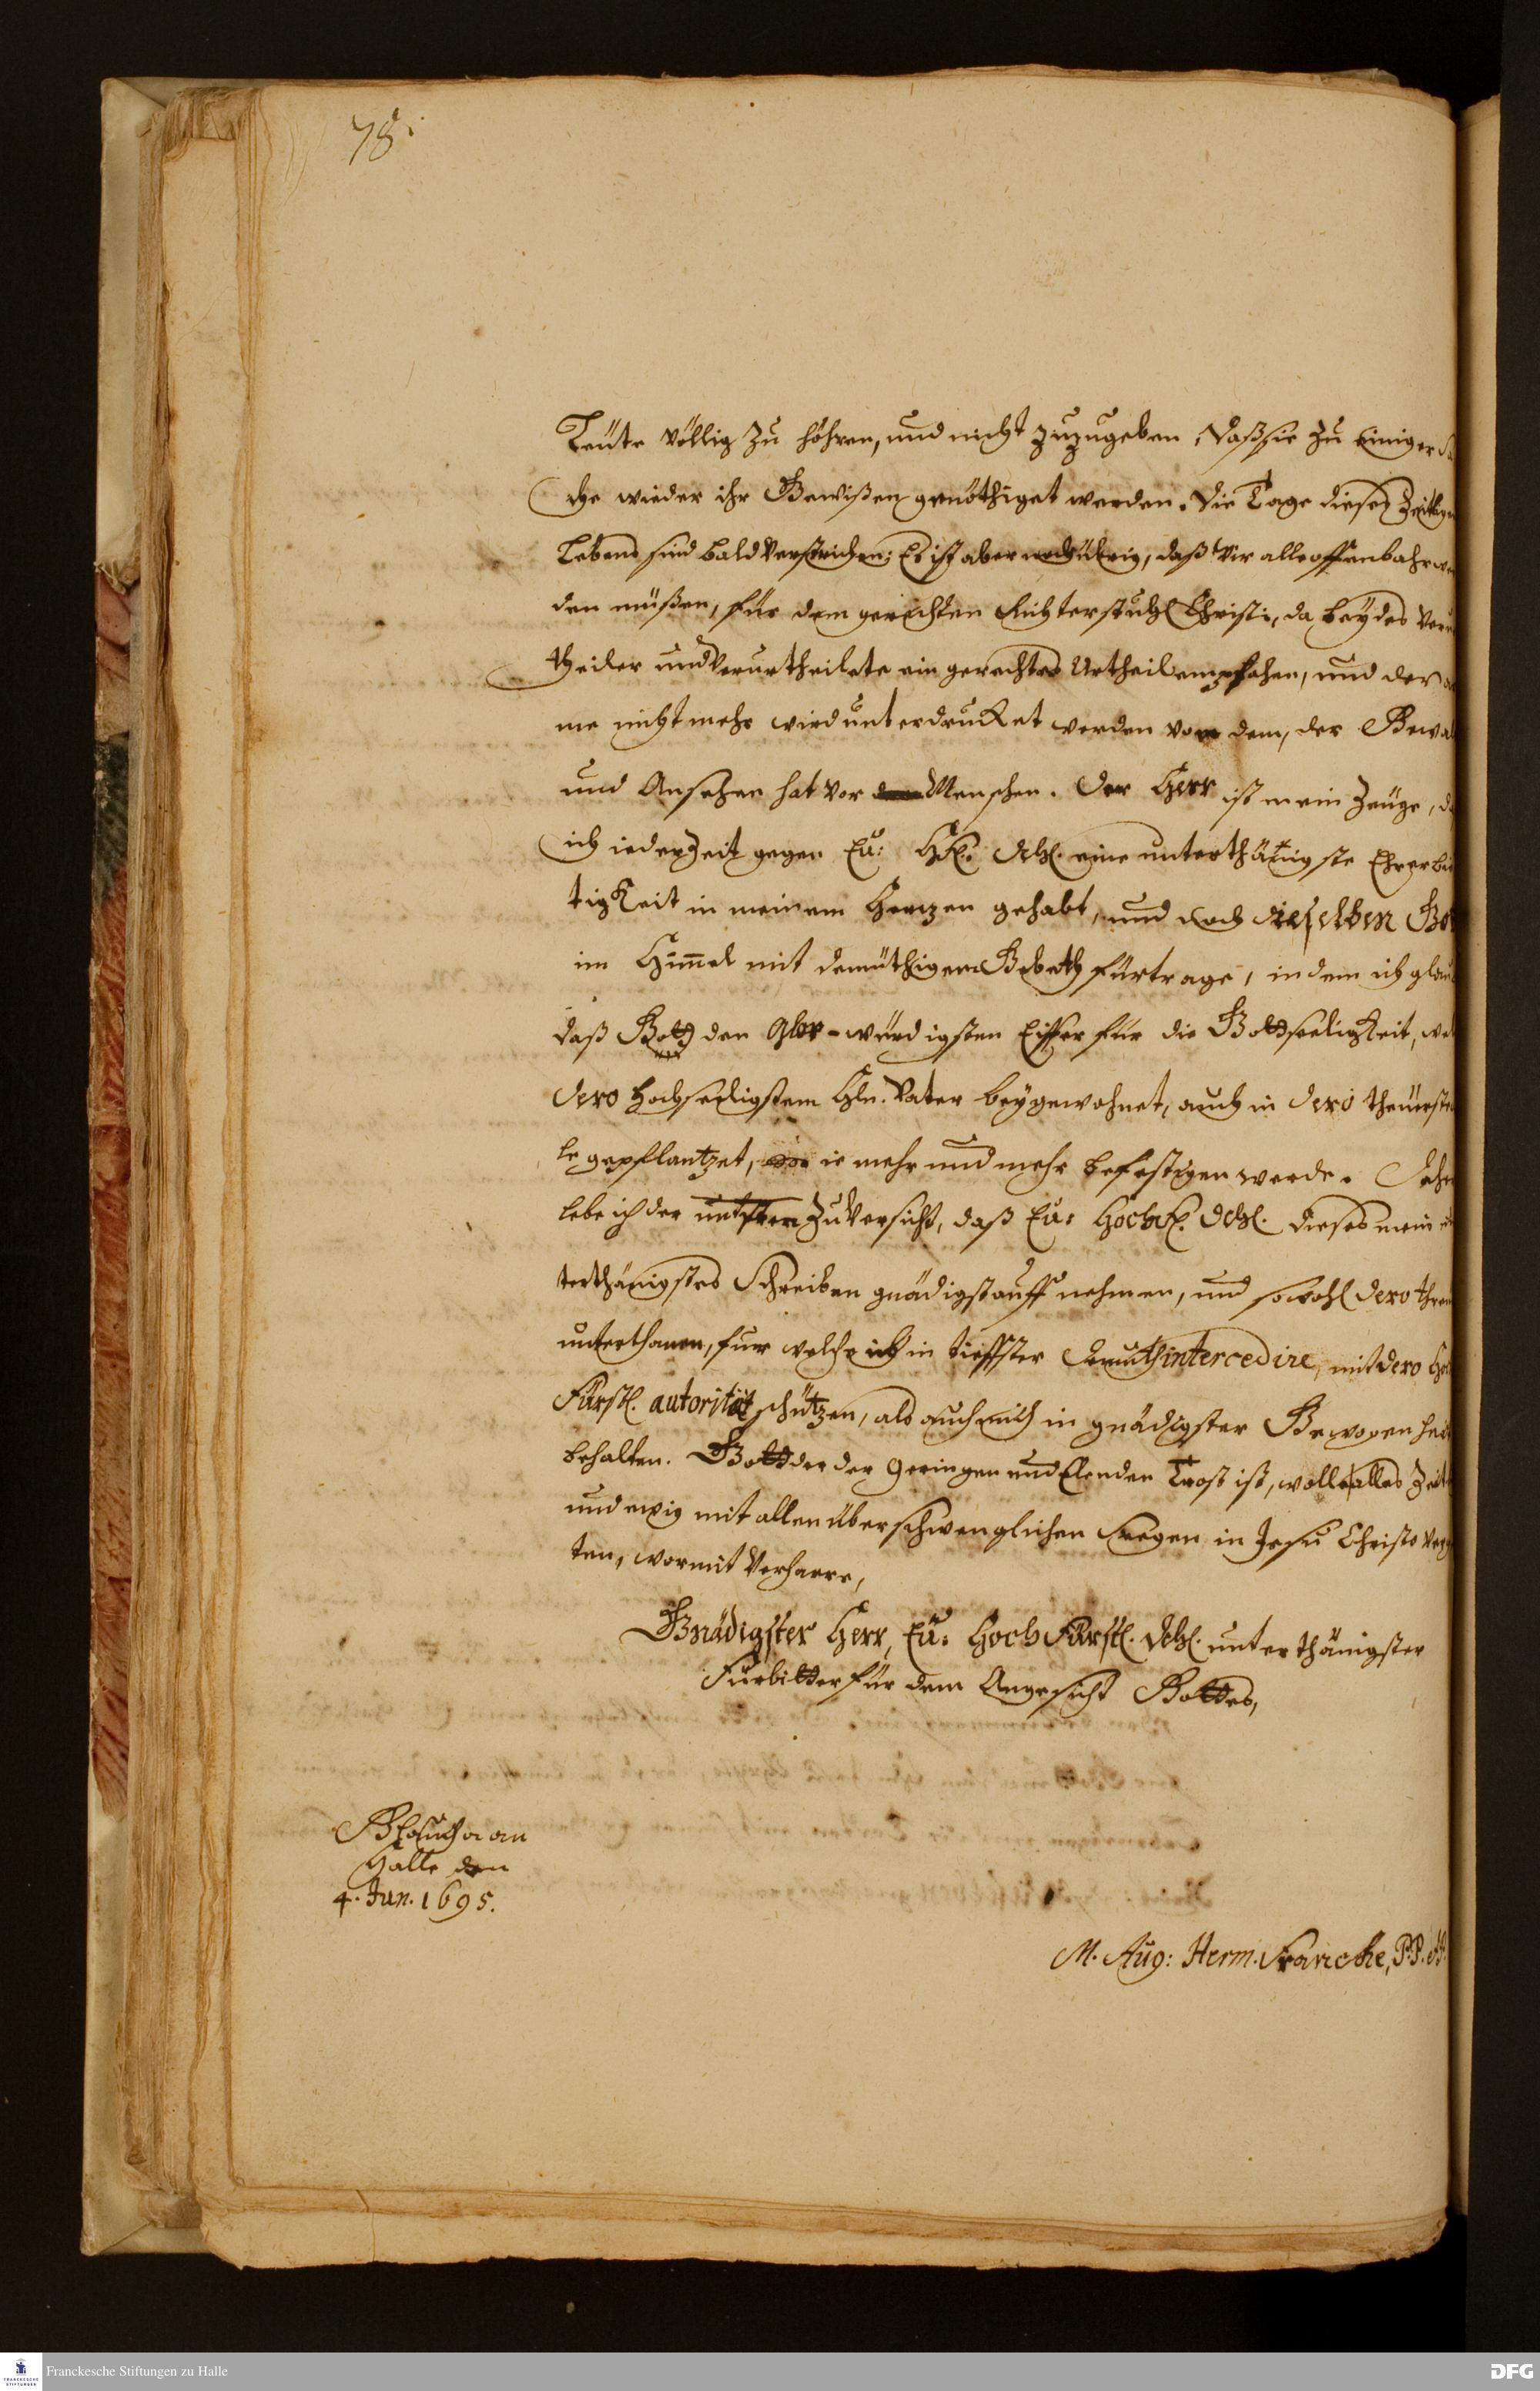 78.
Leüte völlig zu höhren, und nicht zuzugeben, daß sie zu einiger Sa
che wieder ihr Gewißen genöthiget werden. Die Tage dieses Zeitlichen
Lebens sind bald verstrichen: Es ist aber daß wir alle offenbahr wer
den müßen, für dem gerechten Richterstuhl Christi, da beydes Verur
theiler und Verurtheilete ein gerechtes Urtheil empfahen, und der ar
me nicht mehr wird unterdrucket werden von dem, der Gewalt
und Ansehen hat vor Menschen. Der Herr ist mein Zeüge, daß
ich iederzeit gegen Eu: Hf. Dchl. eine unterthänigste Ehrerbie
tigkeit in meinem Hertzen gehabt, und noch dieselben Gott
im Himmel mit demüthigem Gebeth fürtrage, indem ich glaube
daß Gott den Glor-würdigsten Eiffer für die Gottseeligkeit, wel
Dero hochseeligstem Hln. Vater beygewohnet, auch in Dero theüerste
le gepflantzet, ie mehr und mehr befestigen werde. Daher
lebe ich der Zuversicht, daß Eu: Hochf. Dchl. dieses mein un
terthänigstes Schreiben gnädigst auffnehmen, und sowohl Dero
unterthanen, fuer welche ich in tieffster Demuth intercedire, mit Dero Hoch
Fürstl. autorität schützen, als auch mich in gnädigster Gewogenheit
behalten. Gott der der Geringen und Elenden Trost ist, wolle alles Zeit
und ewig mit allen überschwenglichen Seegen in Jesu Christo
ten, wormit verharre,
Gnädigster Herr, Eu: HochFürstl. Dchl. unterthänigster
Fürbitter für dem Angesicht Gottes,
Glaucha an
Halle den
4. Jun. 1695.
M. Aug: Herm. Francke, P.P.
Franckesche Stiftungen zu Halle
DFG